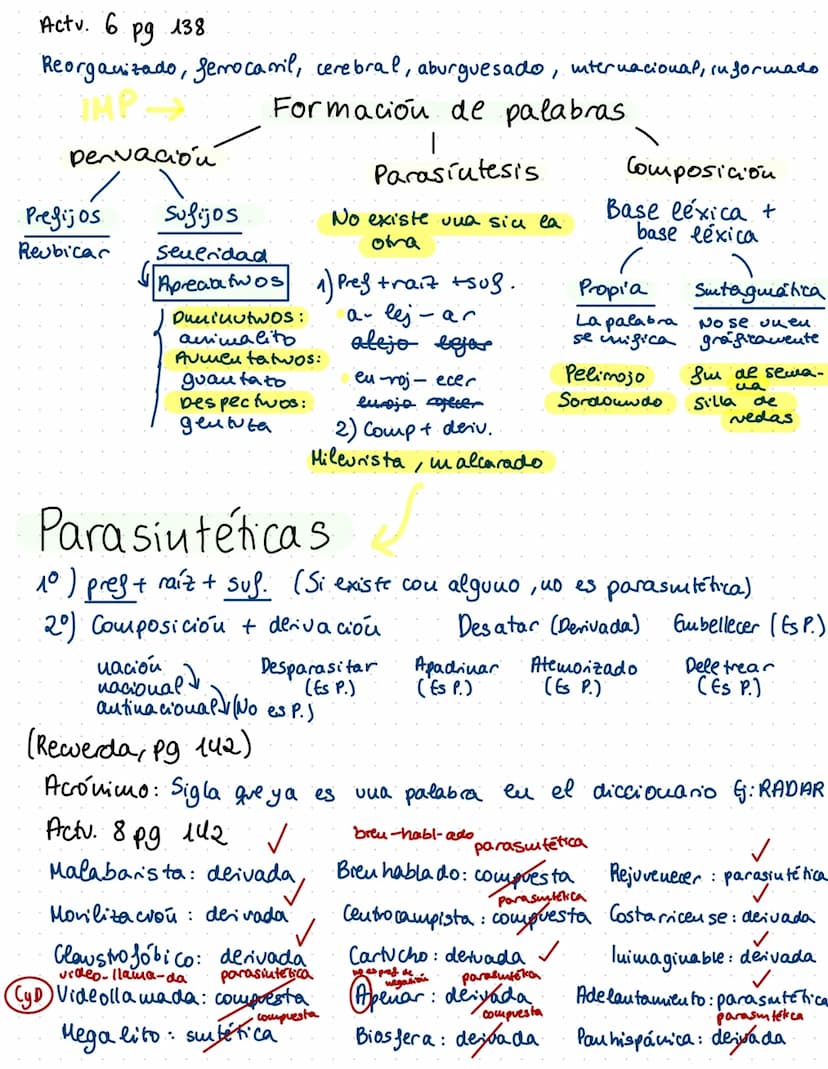 Actv. 6 pg 138
Reorganizado, ferrocarril, cerebral, aburguesado, internacional, informado
IMP →
Formación de palabras
Derivación
Parasíntesis
Composición
Prefijos
Reubicar
Sufijos
Seueridad
Apreciativos
Diminutivos:
animalito
Aumentativos:
guantazo
Despectivos:
gentuza
No existe una sin la
otra
1) Pref + raíz + suf.
a - lej - ar
alejo lejar
en - roj - ecer
enrojo ojecer
2) Comp + deriv.
Mileurista, malcarado
Base léxica +
base léxica
Propia
La palabra
se unifica
Pelirrojo
Sordomudo
Sintagmática
No se unen
gráficamente
fin de sema-
na
silla de
ruedas
Parasintéticas
1º) pref + raíz + suf. (Si existe con alguno, no es parasintética)
2º) Composición + derivación
Desatar (Derivada)
Embellecer (Es P.)
nación
nacional
antinacional (No es P.)
Desparasitar
(Es P.)
Apadrinar
(Es P.)
Atemorizado
(Es P.)
Deletrear
(Es P.)
(Recuerda, pg 142)
Acrónimo: Sigla que ya es una palabra en el diccionario Ej: RADAR
Actv. 8 pg 142
Malabarista: derivada
Movilización: derivada
Claustrofóbico: derivada
video-llama-da parasintética
CyD Videollamada: compuesta
compuesta
Megalito: sintética
bien-habl-ado
parasintética
Bien hablado: compuesta
parasintética
Centrocampista: compuesta
Cartucho: derivada
no es pref de
negación
parasintética
Apenar: derivada
compuesta
Biosfera: derivada
Rejuvenecer: parasintética
Costarricense: derivada
Inimaginable: derivada
Adelantamiento: parasintética
parasintética
Panhispánica: derivada